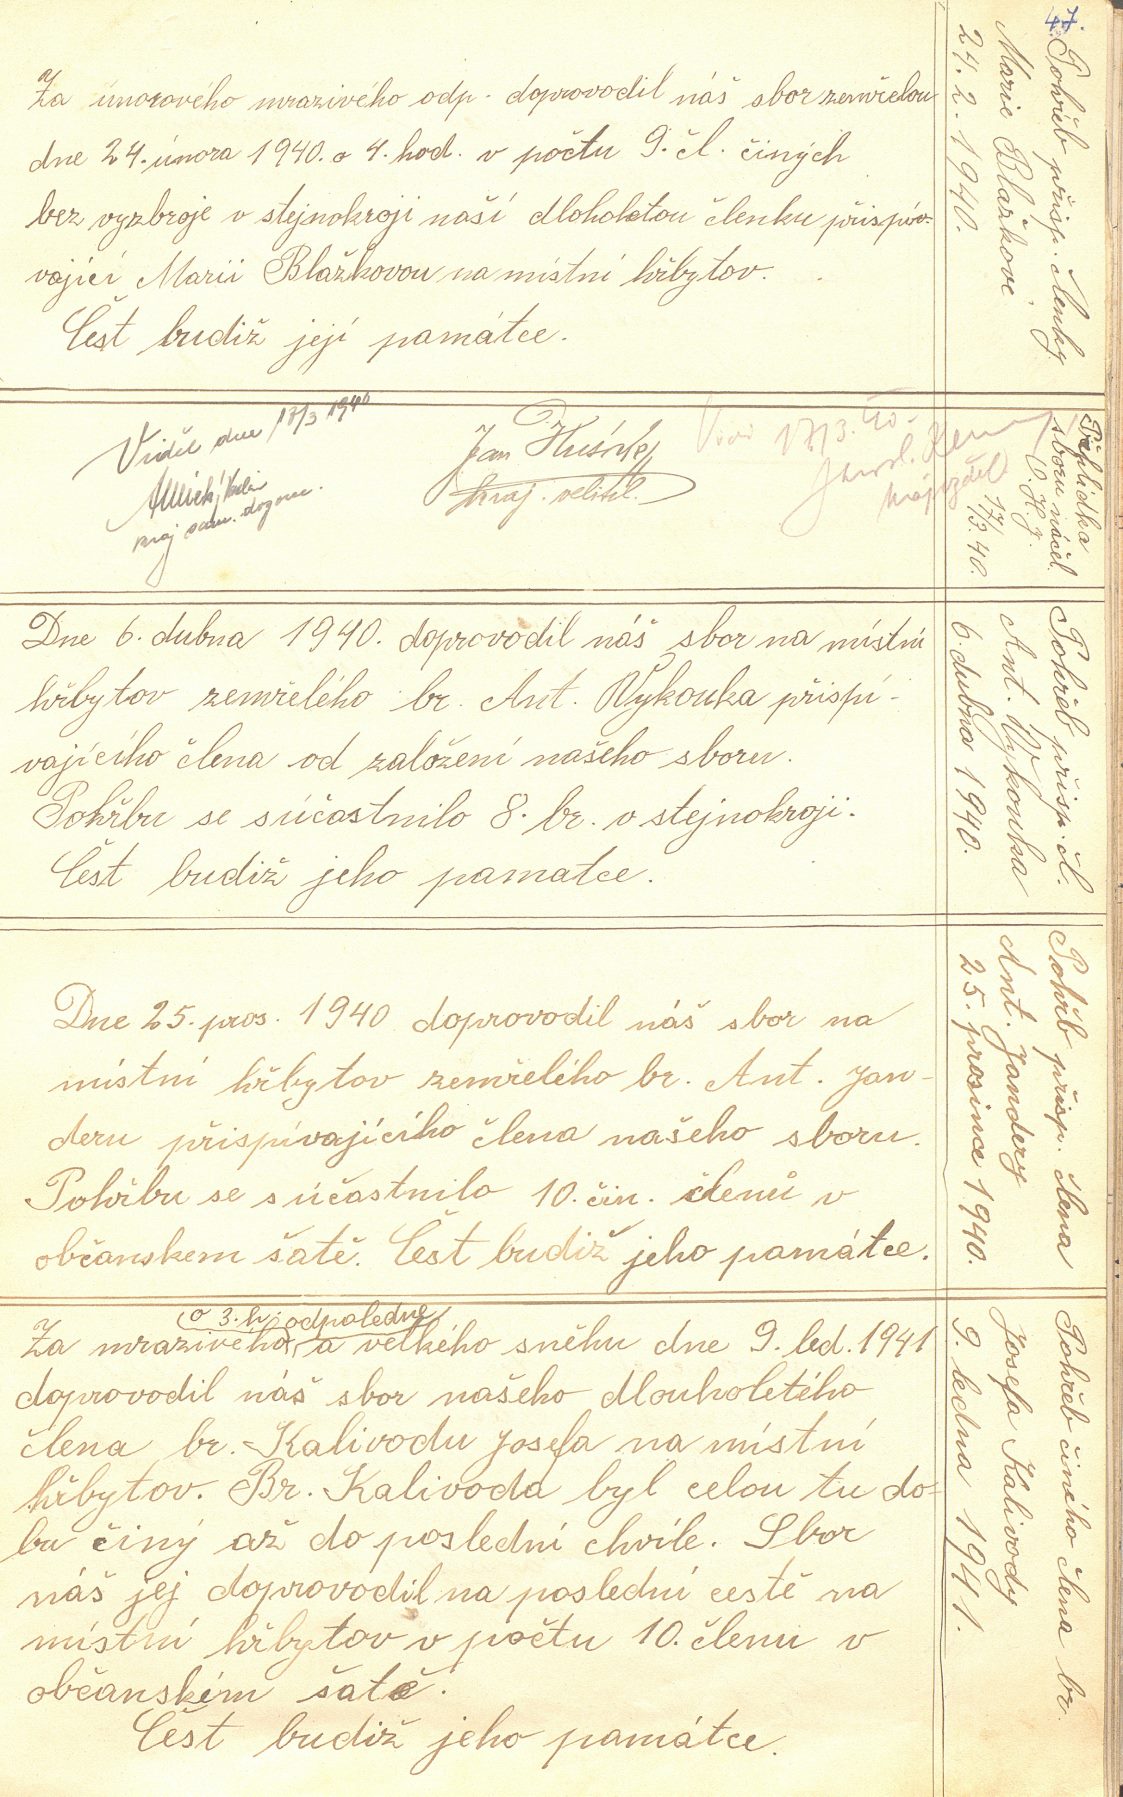 47.
Za únorového mrazivého odp. doprovodil náš sbor zemřelou
dne 24. února 1940. o 4. hod. v počtu 9. čl. činých
bez vyzbroje v stejnokroji naší dloholetou členku přispív-
vající Marii Blažkovou na místní hřbytov.
Čest budiž její památce.
Pohřeb přisp. členky
Marie Blažkové
24. 2. 1940.
Viděl dne 17/3 1940
kraj sam. dozorce.
Jan Husínky
kraj. velitel.
17/3. 40.
Jarosl.
Přehlídka
sboru náčel.
O. H. J.
17/3. 40.
Dne 6. dubna 1940. doprovodil náš sbor na místní
hřbytov zemřelého br. Ant. Vykouka přispí-
vajícího člena od založení našeho sboru.
Pohřbu se súčastnilo 8. br. v stejnokroji.
Čest budiž jeho pamatce.
Pohřeb přisp. čl.
Ant. Vykouka
6. dubna 1940.
Dne 25. pros. 1940 doprovodil náš sbor na
místní hřbytov zemřelého br. Ant. Jan-
deru přispívajícího člena našeho sboru.
Pohřbu se súčastnilo 10. čin. členů v
občanskem šatě. Čest budiž jeho památce.
Pohřb přisp. člena
Ant. Jandery
25. prosince 1940.
o 3. h. odpaledne
Za mrazivého a velkého sněhu dne 9. led. 1941
doprovodil náš sbor našeho dlouholetého
člena br. Kalivodu Josefa na místní
hřbytov. Br. Kalivoda byl celou tu do-
bu činý až do poslední chvíle. Sbor
náš jej doprovodil na poslední cestě na
místní hřbytov v počtu 10. členu v
občanském šatě.
Čest budiž jeho památce.
Pohřeb činého člena br.
Josefa Kalivody
9. ledna 1941.